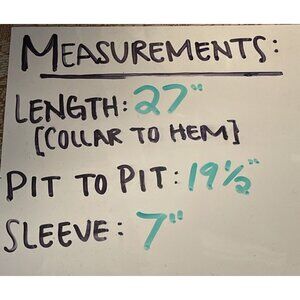 MEASUREMENTS:
LENGTH: 27"
[COLLAR TO HEM]
PIT TO PIT: 19½"
SLEEVE: 7"